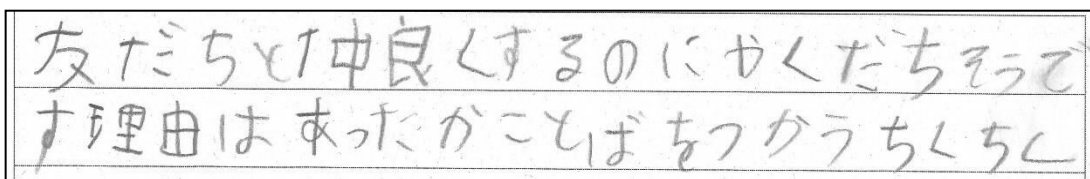 友だちと仲良くするのにやくだちそうで
す理由はあったかことばをつかうちくちく